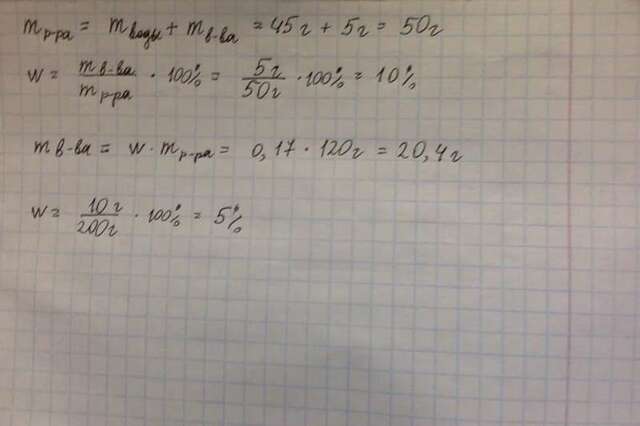 m р-ра = m воды + m в-ва = 45г + 5г = 50г
w = m в-ва / m р-ра · 100% = 5г / 50г · 100% = 10%
m в-ва = w · m р-ра = 0,17 · 120г = 20,4г
w = 10г / 200г · 100% = 5%